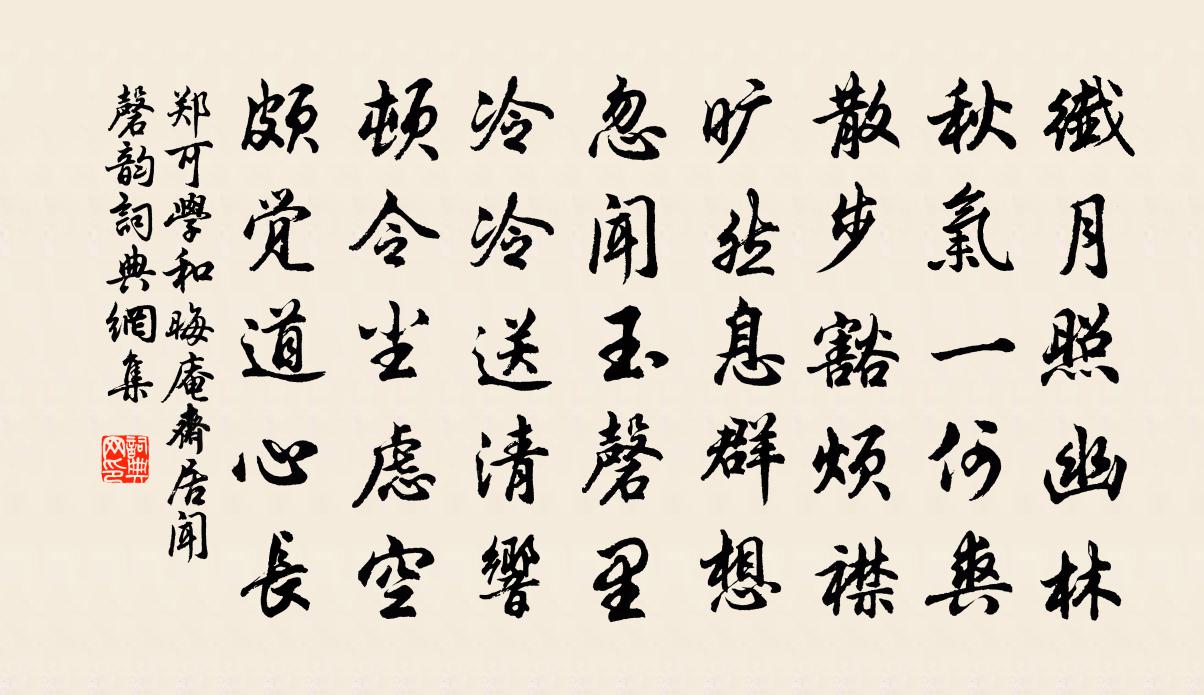 纖月照幽林
秋氣一何爽
散步豁烦襟
旷然息群想
忽聞玉磬里
冷冷送清響
顿令尘虑空
颇觉道心長
郑可學和晦庵齋居聞
磬韵詞典網集
詞典网印